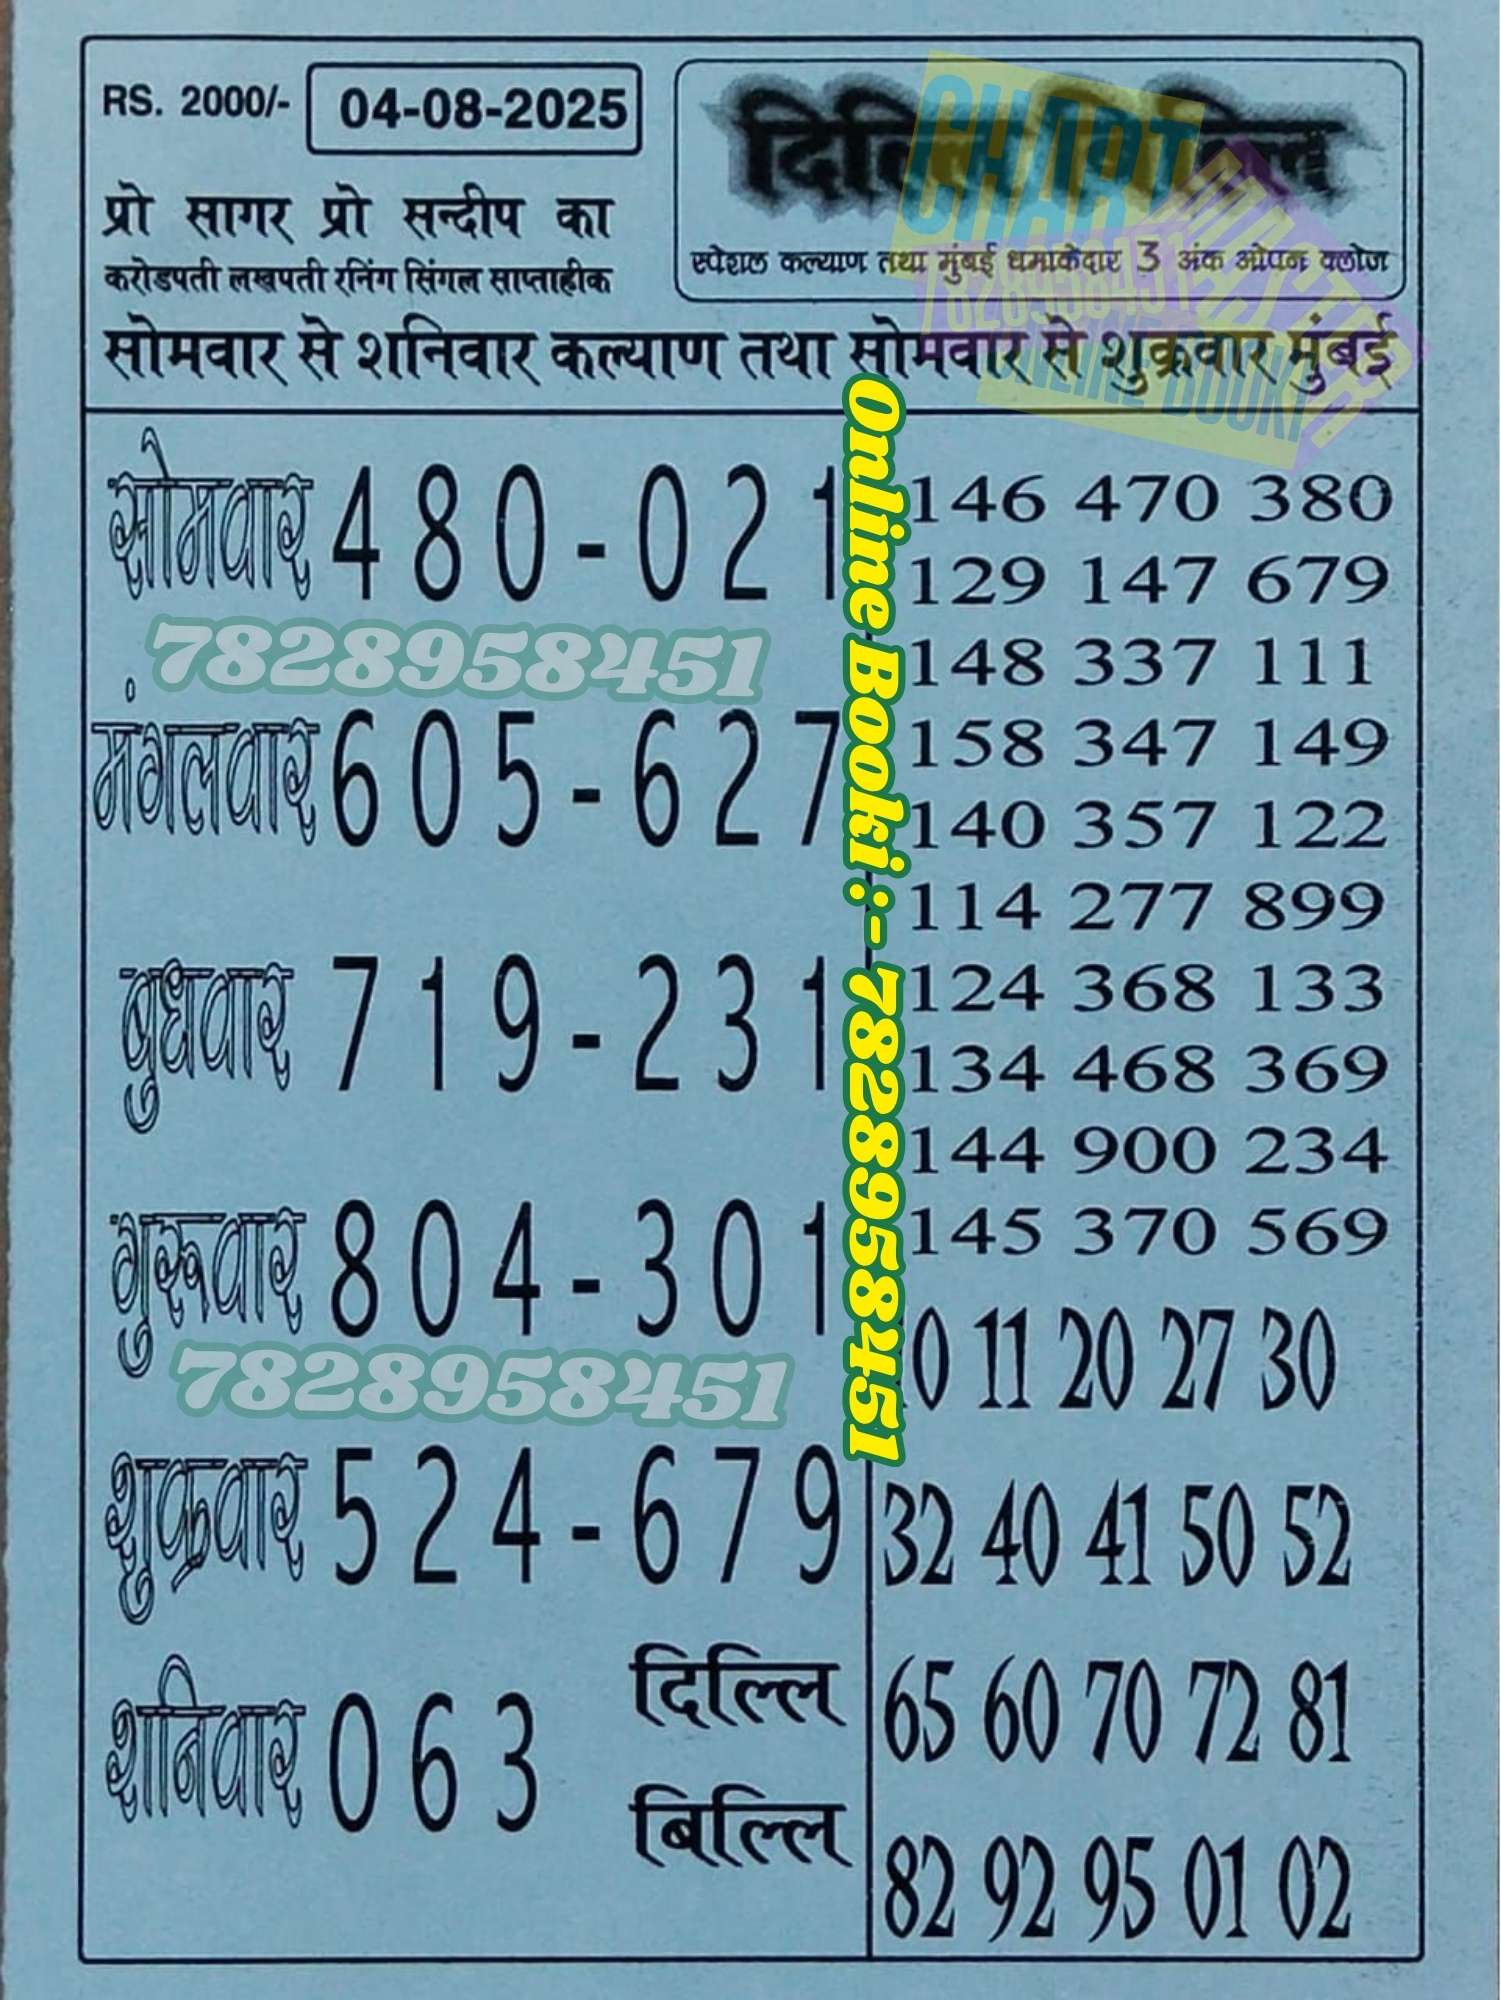 RS. 2000/- 04-08-2025
दिल्लि बिल्लि
प्रो सागर प्रो सन्दीप का
करोडपती लखपती रनिंग सिंगल साप्ताहीक
स्पेशल कल्याण तथा मुंबई धमाकेदार 3 अंक ओपन क्लोज
CHART MASTER
7828958451
ONLINE BOOKI
सोमवार से शनिवार कल्याण तथा सोमवार से शुक्रवार मुंबई
सोमवार 480-021
7828958451
मंगलवार 605-627
बुधवार 719-231
गुरूवार 804-301
7828958451
शुक्रवार 524-679
शनिवार 063
दिल्लि
बिल्लि
Online Booki:- 7828958451
146 470 380
129 147 679
148 337 111
158 347 149
140 357 122
114 277 899
124 368 133
134 468 369
144 900 234
145 370 569
10 11 20 27 30
32 40 41 50 52
65 60 70 72 81
82 92 95 01 02